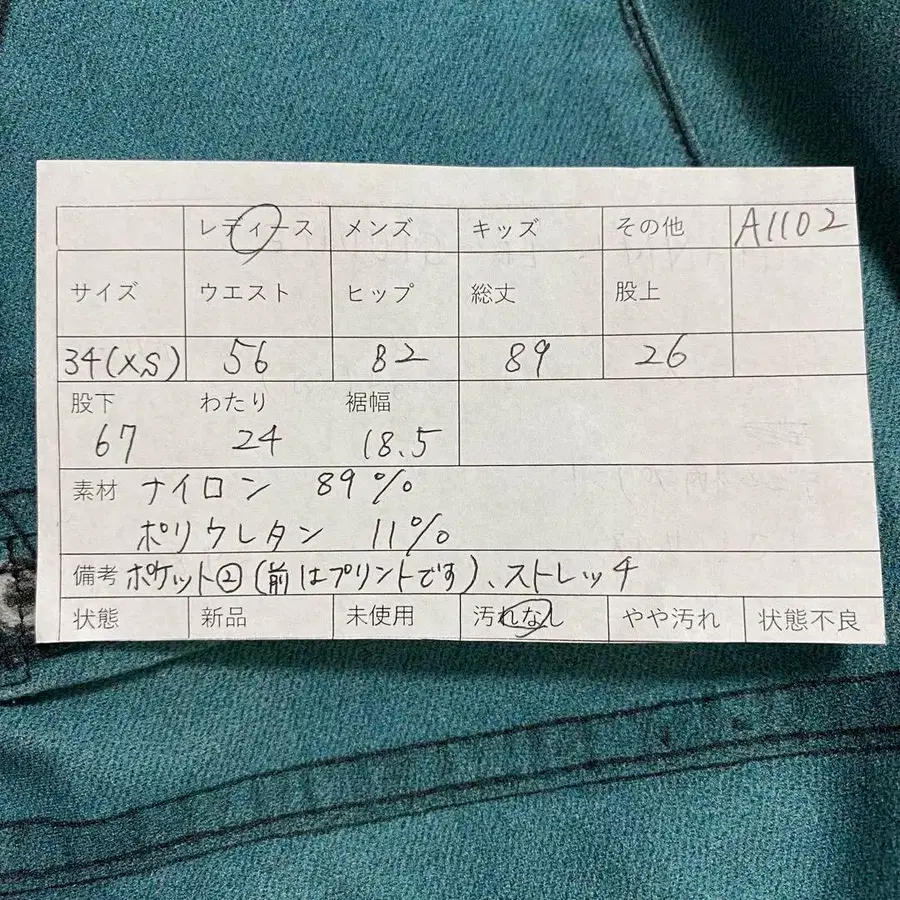 レディース メンズ キッズ その他 A1102
サイズ ウエスト ヒップ 総丈 股上
34(XS) 56 82 89 26
股下 わたり 裾幅
67 24 18.5
素材 ナイロン 89%
ポリウレタン 11%
備考 ポケット②(前はプリントです)、ストレッチ
状態 新品 未使用 汚れなし やや汚れ 状態不良